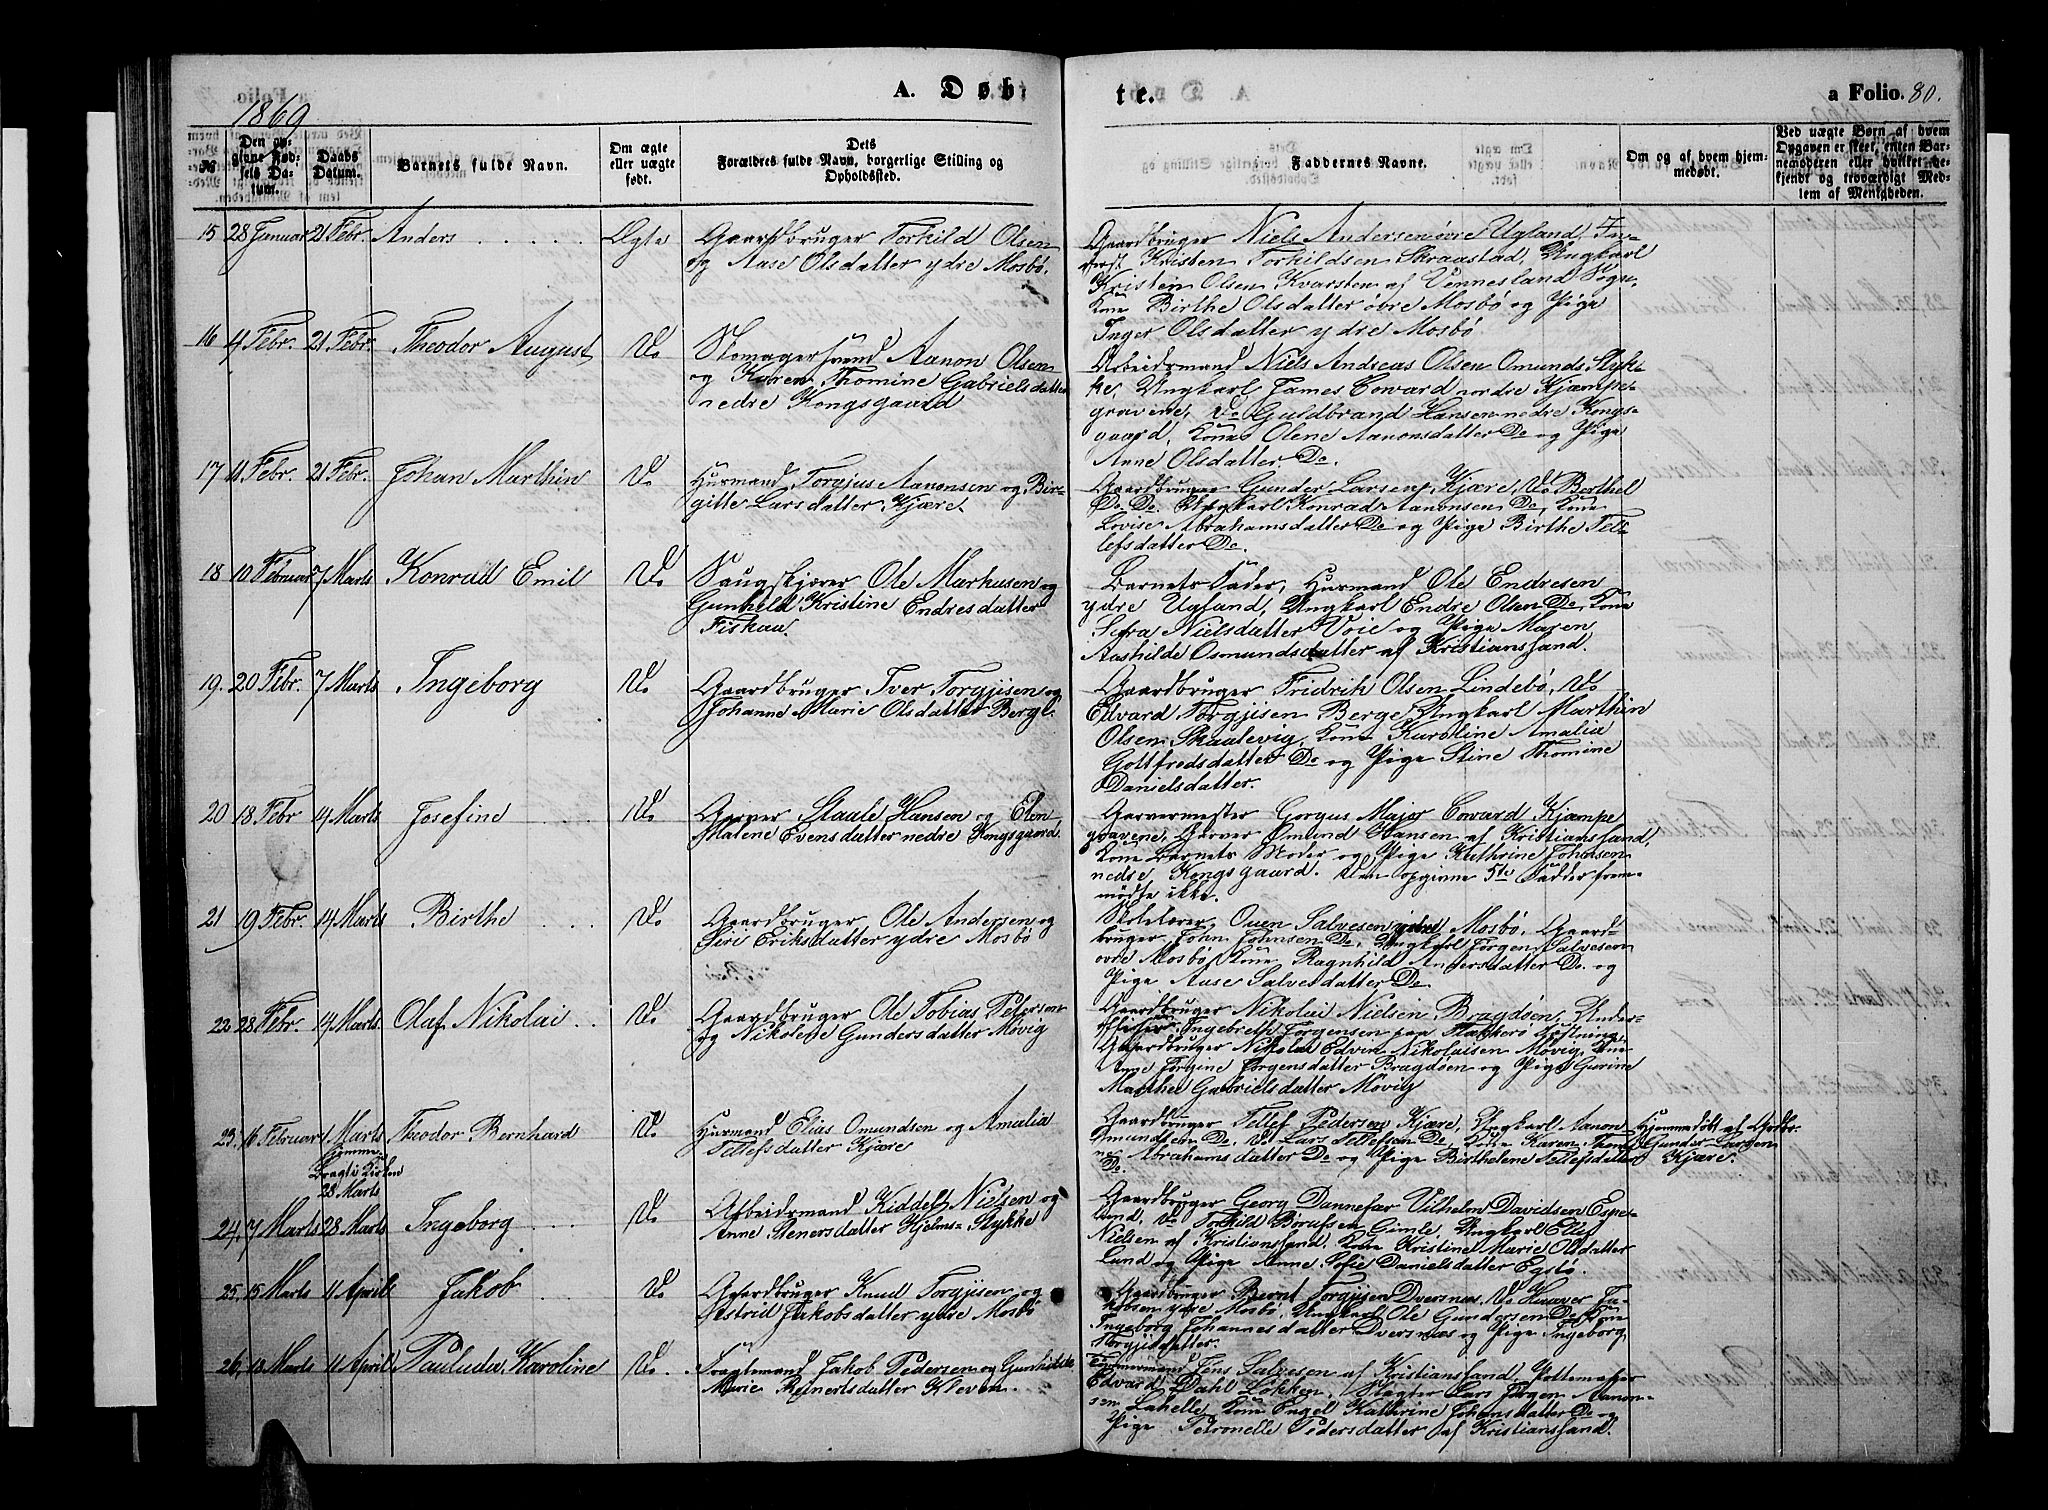 1869
A. Døbte.
a Folio. 80.
№
Den opgivne Fødsels Datum.
Daabs Datum.
Barnets fulde Navn.
Om ægte eller uægte født.
Dets Forældres fulde Navn, borgerlige Stilling og Opholdssted.
Faddernes Navne.
Om og af hvem hjemmedøbt.
Ved uægte Børn af hvem Opgaven er skeet, enten Barnemoderen eller hvilket bekjendt og troværdigt Medlem af Menigheden.
15 28 Januar 21 Febr. Anders Ægte
Gaardbruger Torkild Olsen
og Aase Olsdatter ydre Mosbø.
Gaardbruger Niels Andersen øvre Ugland, In-
derst Kristen Torkildsen Skraastad, Ungkarl
Kristen Olsen Kvarsten af Vennesland Sogn,
Kone Birthe Olsdatter øvre Mosbø og Pige
Inger Olsdatter ydre Mosbø
16 4 Febr. 21 Febr. Theodor August Do
Skomagersvend Aanon Olsen
og Karen Thomine Gabrielsdatter
nedre Kongsgaard
Arbeidsmand Niels Andreas Olsen Omunds Styk-
ke, Ungkarl James Coward nordre Kjæmpe-
gravene, Do Guldbrand Hansen nedre Kongs-
gaard, Kone Olene Aanonsdatter Do og Pige
Anne Olsdatter Do.
17 11 Febr. 21 Febr. Johan Marthin Do
Husmand Torgjus Aanonsen og Bir-
gitte Larsdatter Kjære.
Gaardbruger Gunder Larsen Kjære, Do Berthel
Do Do, Ungkarl Konrad Aanonsen Do, Kone
Lovise Abrahamsdatter Do og Pige Birthe Tel-
lefsdatter Do.
18 10 Februar 7 Marts Konrad Emil Do
Saugskjærer Ole Markusen og
Gunhild Kristine Endresdatter
Fiskaa.
Barnets Fader, Husmand Ole Endresen
ydre Ugland, Ungkarl Endre Olsen Do, Kone
Sera Nielsdatter Voie og Pige Maren
Aashilde Osmundsdatter af Kristianssand.
19. 20 Febr. 7 Marts Ingeborg Do
Gaardbruger Iver Torgjisen og
Johanne Marie Olsdatter Berge.
Gaardbruger Fridrik Olsen Lindebø, Do
Edvard Torgjisen Berge, Ungkarl Marthin
Olsen Skaalevig, Kone Karoline Amalia
Gottfredsdatter Do og Pige Stine Thomine
Danielsdatter.
20 18 Febr 14 Marts Josefine Do
Garver Staale Hansen og Elen
Malene Evensdatter nedre Kongsgaard.
Garvermester Gorgus Major Coward Kjæmpe
gravene, Garver Omund Hansen af Kristianssand,
Kone Barnets Moder og Pige Kathrine Johnsen
nedre Kongsgaard. Den opgivne 5te Fadder frem-
mødte ikke.
21 19 Febr. 14 Marts Birthe Do
Gaardbruger Ole Andersen og
Siri Eriksdatter ydre Mosbø
Skolelærer Ouen Salvesen ydre Mosbø, Gaard-
bruger John Johnsen Do, Ungkarl Jørgen Salvesen
øvre Mosbø, Kone Ragnhild Andersdatter Do og
Pige Aase Salvesdatter Do
22 28 Febr. 14 Marts Olaf Nikolai Do
Gaardbruger Ole Tobias Petersen
og Nikolene Gundersdatter Møvig
Gaardbruger Nikolai Nielsen Bragdøen, Under-
officer Ingebreth Jørgensen paa Flækkerø Fæstning,
Gaardbruger Nikolai Edvin Nikolaisen Møvig, Kone
Ane Jørgine Jørgensdatter Bragdøen og Pige Gurine
Marthe Gabrielsdatter Møvig
23. 16 Februar 1 Marts hjemme Bragt i Kirken 28 Marts Theodor Bernhard Do
Husmand Elias Omundsen og Amalia
Tellefsdatter Kjære
Gaardbruger Tellef Pedersen Kjære, Ungkarl Aanon
Omundsen Do, Do Lars Tellefsen Do, Kone Karen Thomi-
ne Abrahamsdatter Do og Pige Birthelene Tellefsdatter
Do.
Hjemmedøbt af Grdbr.
Gunder Larsen
Kjære.
24. 7 Marts 28 Marts Ingeborg Do
Arbeidsmand Kiddel Nielsen og
Anne Stenersdatter Hjelms-Stykke
Gaardbruger Georg Dannefær Vilhelm Davidsen Espe-
lund, Do Torkild Børufsen Gimle, Ungkarl Ellef
Nielsen af Kristianssand, Kone Kristine Marie Olsdatter
Lund og Pige Anne Sofie Danielsdatter Egsbø.
25. 15 Marts 11 April Jakob Do
Gaardbruger Knud Torgjisen og
Østrid Jakobsdatter ydre Mosbø
Gaardbruger Bernt Torgjisen Dversnæs, Do Haaver Ja-
kobsen ydre Mosbø, Ungkarl Ole Gundersen Do, Kone
Ingeborg Johannesdatter Dversnæs og Pige Ingeborg
Torgjisdatter.
26. 18 Marts 11 April Pauluda Karoline Do.
Fragtemand Jakob Pedersen og Gunhilde
Marie Reinertsdatter Kleven.
Tømmermand Jens Salvesen af Kristianssand, Pottemager
Edvard Dahl Løkken, Slagter Lars Jørgen Aanon-
sen Lahelle, Kone Engel Kathrine Johansdatter Do og
Pige Petronelle Pedersdatter af Kristianssand.